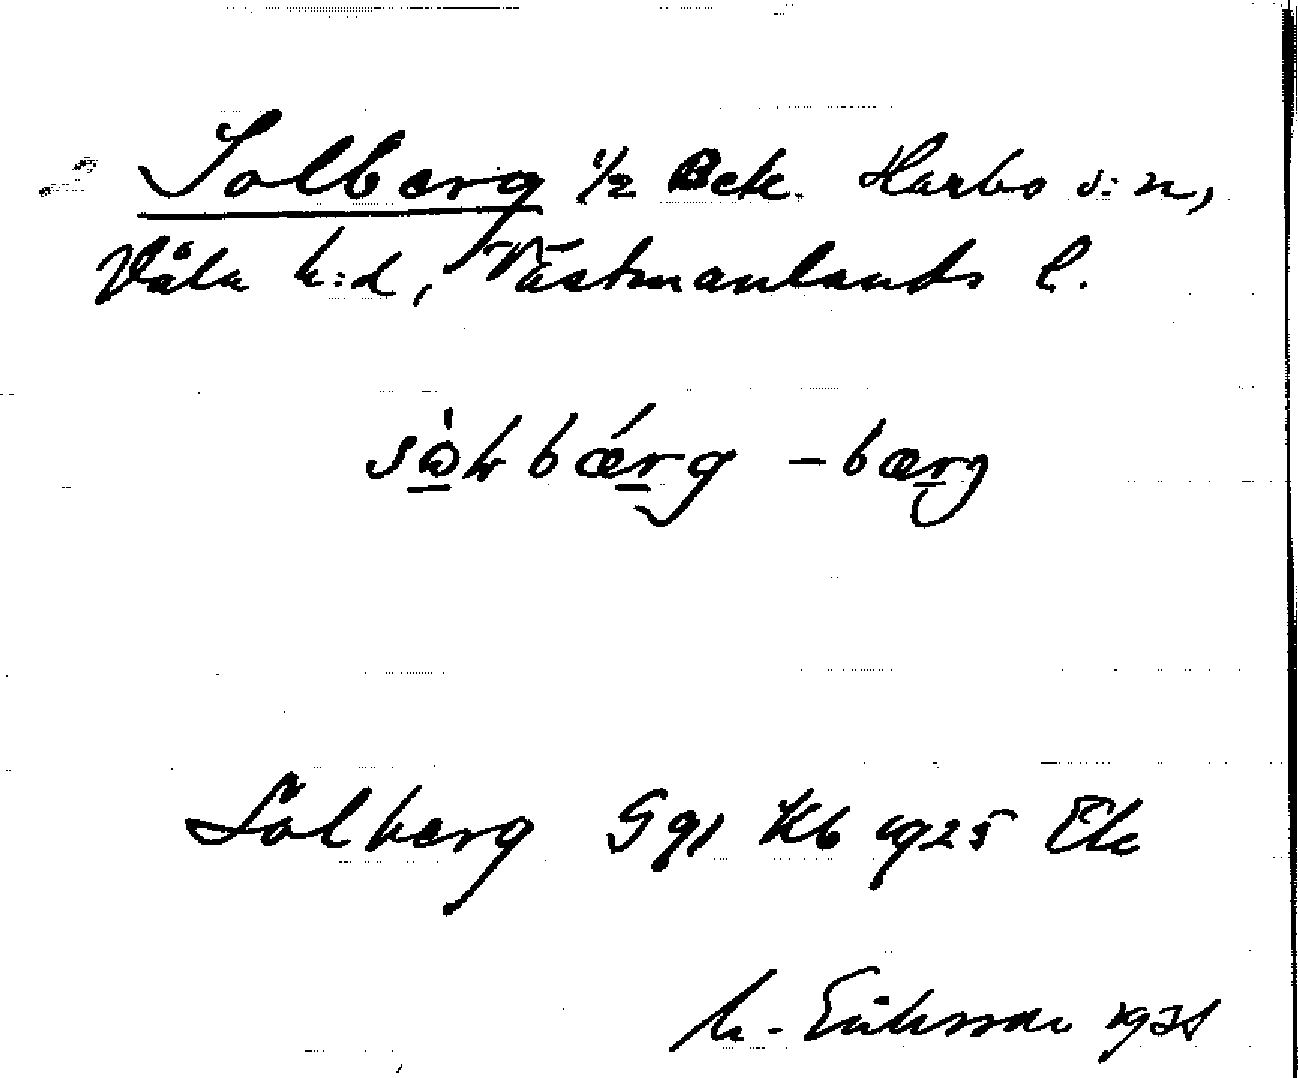 Solberg 1/2 Bek. Harbo s:n,
Våla h:d, Västmanlands l.
bærg - bærg
Solberg Ggl Kb 1925 Ek
M. Eriksson